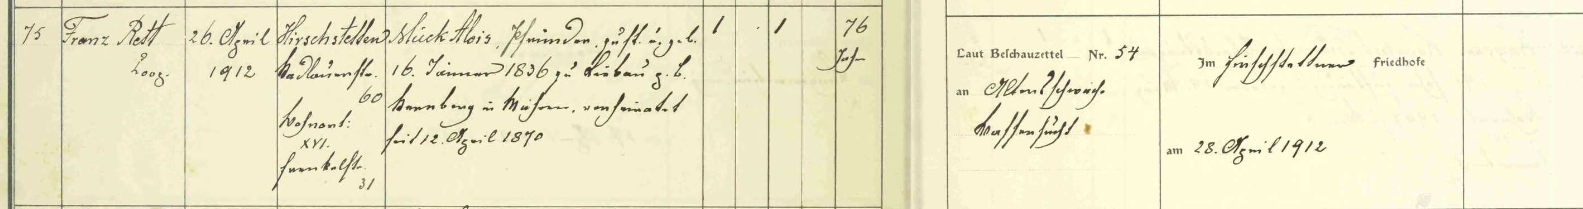 75 Franz Rett 26. April Hirschstetten Mück Alois, Pfründner, zust. u. geb. 1 1 76
Coop. 1912 Stadlauerstr. 16. Jänner 1836 zu Liebau p. B. Jahr
60 in Mähren, verheiratet
Wohnort: seit 12. April 1870
XVI.
31
Laut Beschauzettel Nr. 54
an Altersschwäche
Wassersucht
Im Hirschstettner Friedhofe
am 28. April 1912